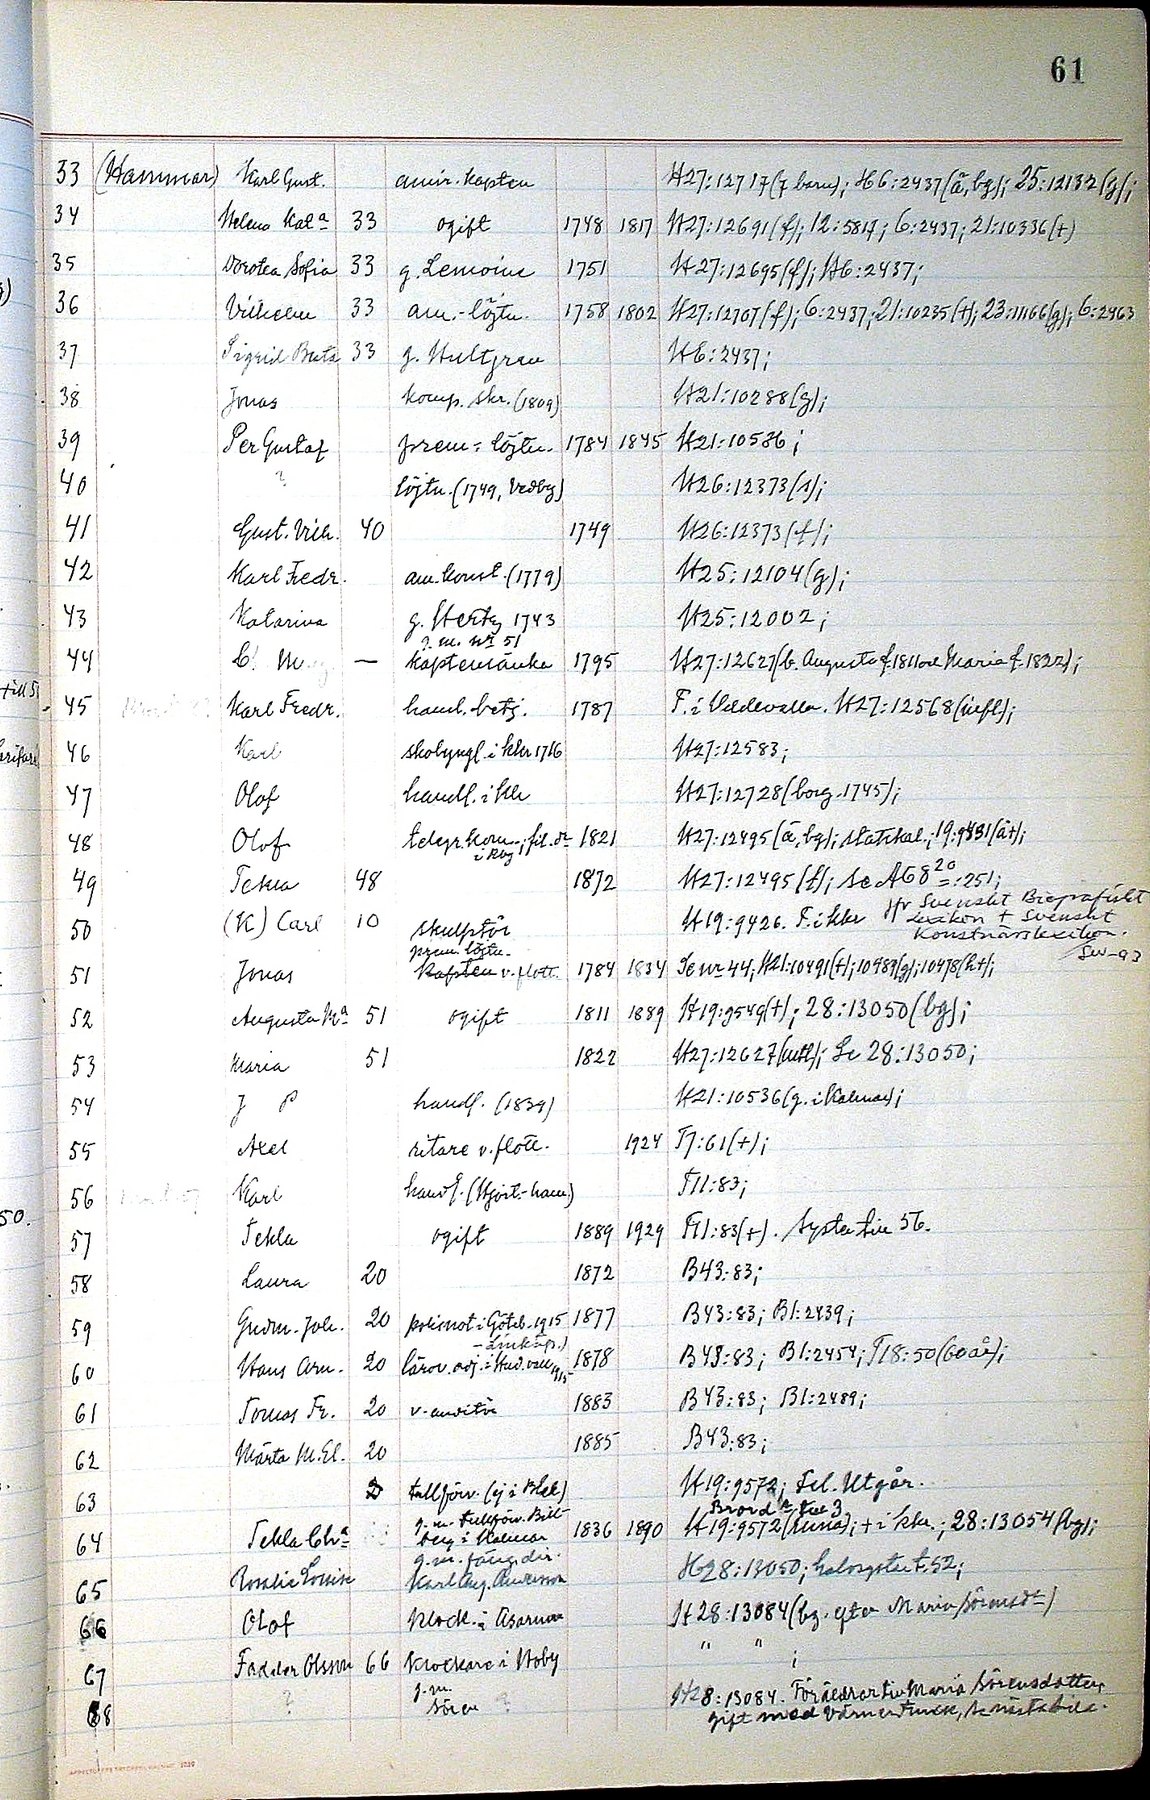 61
33 (Hammar) Karl Gust. amir. kapten H27:12717(7 barn); H6:2437(ä, bg); 25:12132(g);
34 Helena Kat a 33 ogift 1748 1817 H27:12691(f); 12:5817; 6:2437; 21:10336(+)
35 Dorotea Sofia 33 g. Lemoine 1751 H27:12695(f); H6:2437;
36 Vilhelm 33 am.-löjtn. 1758 1802 H27:12707(f); 6:2437; 21:10235(+); 23:11166(g); 6:2463
37 Sigrid Beata 33 g. Hultgren H6:2437;
38 Jonas komp. skr. (1809) H21:10288(g);
39 Per Gustaf prem: löjtn. 1784 1845 H21:10536;
40 ? löjtn. (1749, Vedby) H26:12373(s);
41 Gust. Vilh. 40 1749 H26:12373(f);
42 Karl Fredr. am. konst. (1779) H25:12104(g);
43 Katarina g. Stertz 1743 H25:12002;
g. m. nr 51
44 — kaptensänka 1795 H27:12627(b. Augusta f. 1811 och Maria f. 1822);
45 Karl Fredr. handl. betj. 1787 F. i Uddevalla. H27:12568(infl);
46 Karl skobyggl. i khr 1716 H27:12583;
47 Olof handl. i khr H27:12728(borg. 1745);
48 Olof telegr. kom.; fil. dr 1821 H27:12495(ä, bg); statskal.; 19:9431(ät);
i Kbg
49 Tekla 48 1872 H27:12495(f); Se A68 20 =:251;
50 (K) Carl 10 skulptör H19:9426. F. i khr Jfr Svenskt Biografiskt
Lexikon + Svenskt
Konstnärslexikon.
prem. löjtn.
51 Jonas kapten v. flott. 1784 1834 Se nr 44; H21:10491(+); 10489(g); 10478(h+);
52 Augusta Ma 51 ogift 1811 1889 H19:9549(+); 28:13050(bg);
53 Maria 51 1822 H27:12627(utfl); Se 28:13050;
54 J P handl. (1839) H21:10536(g. i Kalmar);
55 Axel ritare v. flott. 1924 T7:61(+);
56 Karl handl. (Hjort.-ham.) T11:83;
57 Tekla ogift 1889 1929 T11:83(+). Syster till 56.
58 Laura 20 1872 B43:83;
59 Gudm. Joh. 20 polisnot i Göteb. 1915 1877 B43:83; B1:2439;
-Linköp.)
60 Hans Arn. 20 lärov. adj. i Hud.vall 1915 1878 B43:83; B1:2454; T18:50(60 år);
61 Tomas Fr. 20 v. auditör 1883 B43:83; B1:2489;
62 Märta M. El. 20 1885 B43:83;
63 tullförv. (ej i Blek) H19:9572; Fel. Utgår.
Brord. t. 3
g. m. tullförv. Bill-
64 Tekla Ch a berg i Kalmar 1836 1890 H19:9572(runa); + i khr.; 28:13054(bg);
g. m. fång. dir.
65 Rosalie Louise Karl Aug. Andersson H28:13050; halvsyster t. 52;
66 Olof klock. i Asarum H28:13084(bg. efter Maria Sörensdr)
67 Fadder Olsson 66 klockare i Hoby " " ;
g. m.
68 ? Sören ? H28:13084. Föräldrar till Maria Sörensdotter,
gift med Värner Funck, se nästa sida.